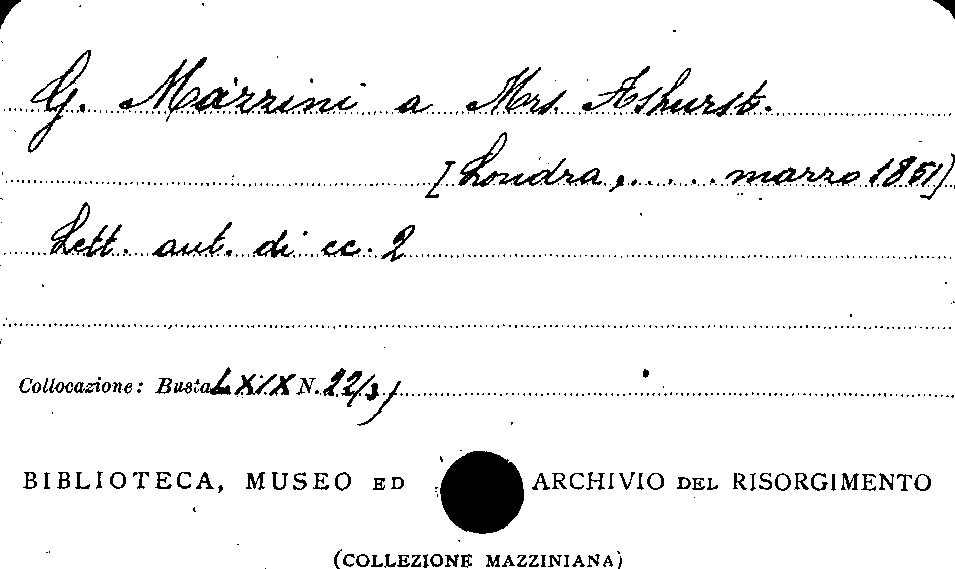 G. Mazzini a Mrs. Ashurst.
[Londra, ..... marzo 1851]
Lett. aut. di cc. 2
Collocazione: Busta LXIX N. 22/3)
BIBLIOTECA, MUSEO ED ARCHIVIO DEL RISORGIMENTO
(COLLEZIONE MAZZINIANA)